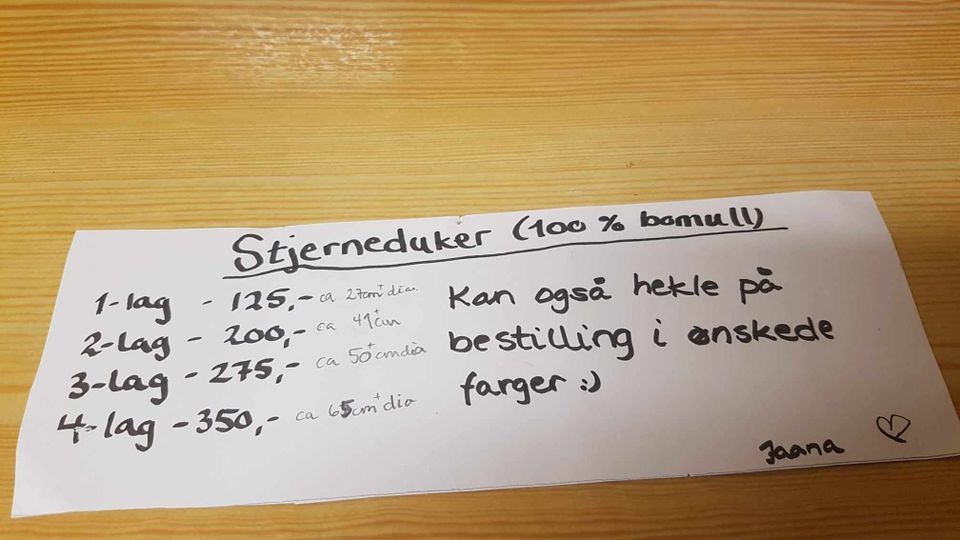 Stjerneduker (100 % bomull)
1-lag - 125,- ca 27cm+ dia
2-lag - 200,- ca 41+cm
3-lag - 275,- ca 50+cm dia
4-lag - 350,- ca 65cm+ dia
Kan også hekle på
bestilling i ønskede
farger :)
Jaana ♡